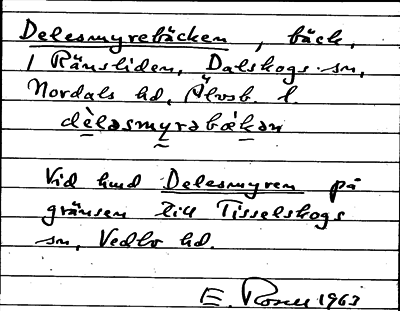 Delesmyrebäcken, bäck,
i Rånsliden, Dalskogs sn,
Nordals hd, Älvsb. l.
dèləsmyrəbækən
Vid kmd Delesmyren på
gränsen till Tisselskogs
sn, Vedbo hd.
E. Rosell 1963